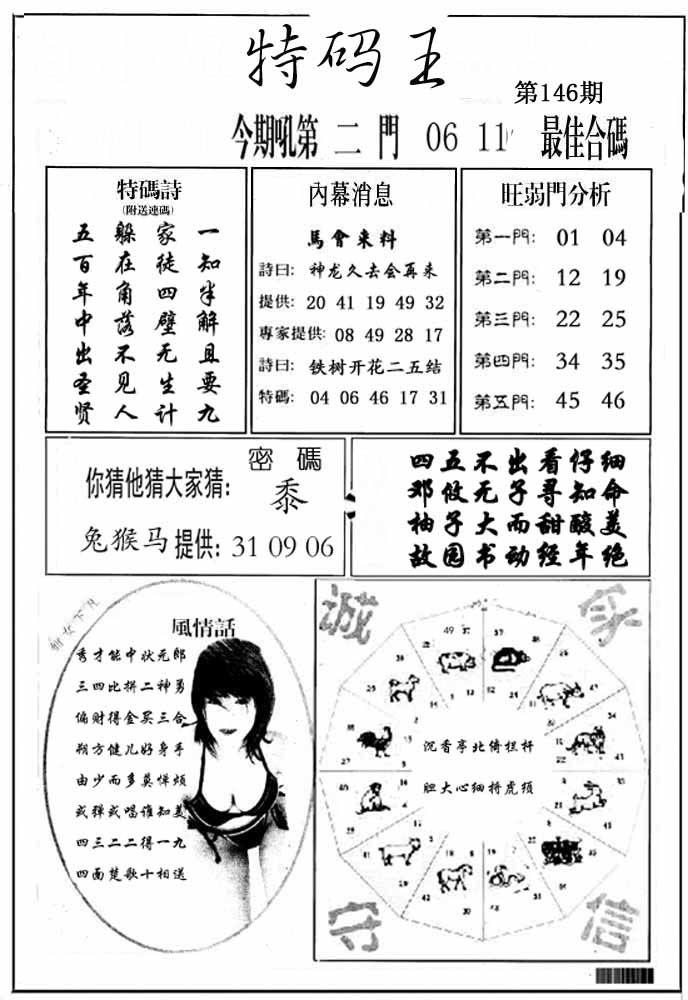 特码王
第146期
今期吼第二門 06 11 最佳合碼
特碼詩
(附送連碼)
一知半解且要九
家徒四壁无生计
躲在角落不见人
五百年中出圣贤
內幕消息
馬會来料
詩曰: 神龙久去会再来
提供: 20 41 19 49 32
專家提供: 08 49 28 17
詩曰: 铁树开花二五结
特碼: 04 06 46 17 31
旺弱門分析
第一門: 01 04
第二門: 12 19
第三門: 22 25
第四門: 34 35
第五門: 45 46
密碼
你猜他猜大家猜: 黍
兔猴马提供: 31 09 06
四五不出看仔细
邓攸无子寻知命
柚子大而甜酸美
故园书动经年绝
仙女下凡
風情話
秀才能中状元郎
三四比拼二神勇
偏财得金买三合
朔方健儿好身手
由少而多莫惮烦
或弹或唱谁知美
四三二二得一九
四面楚歌十相送
诚
家
沉香亭北倚栏杆
胆大心细捋虎须
守
信